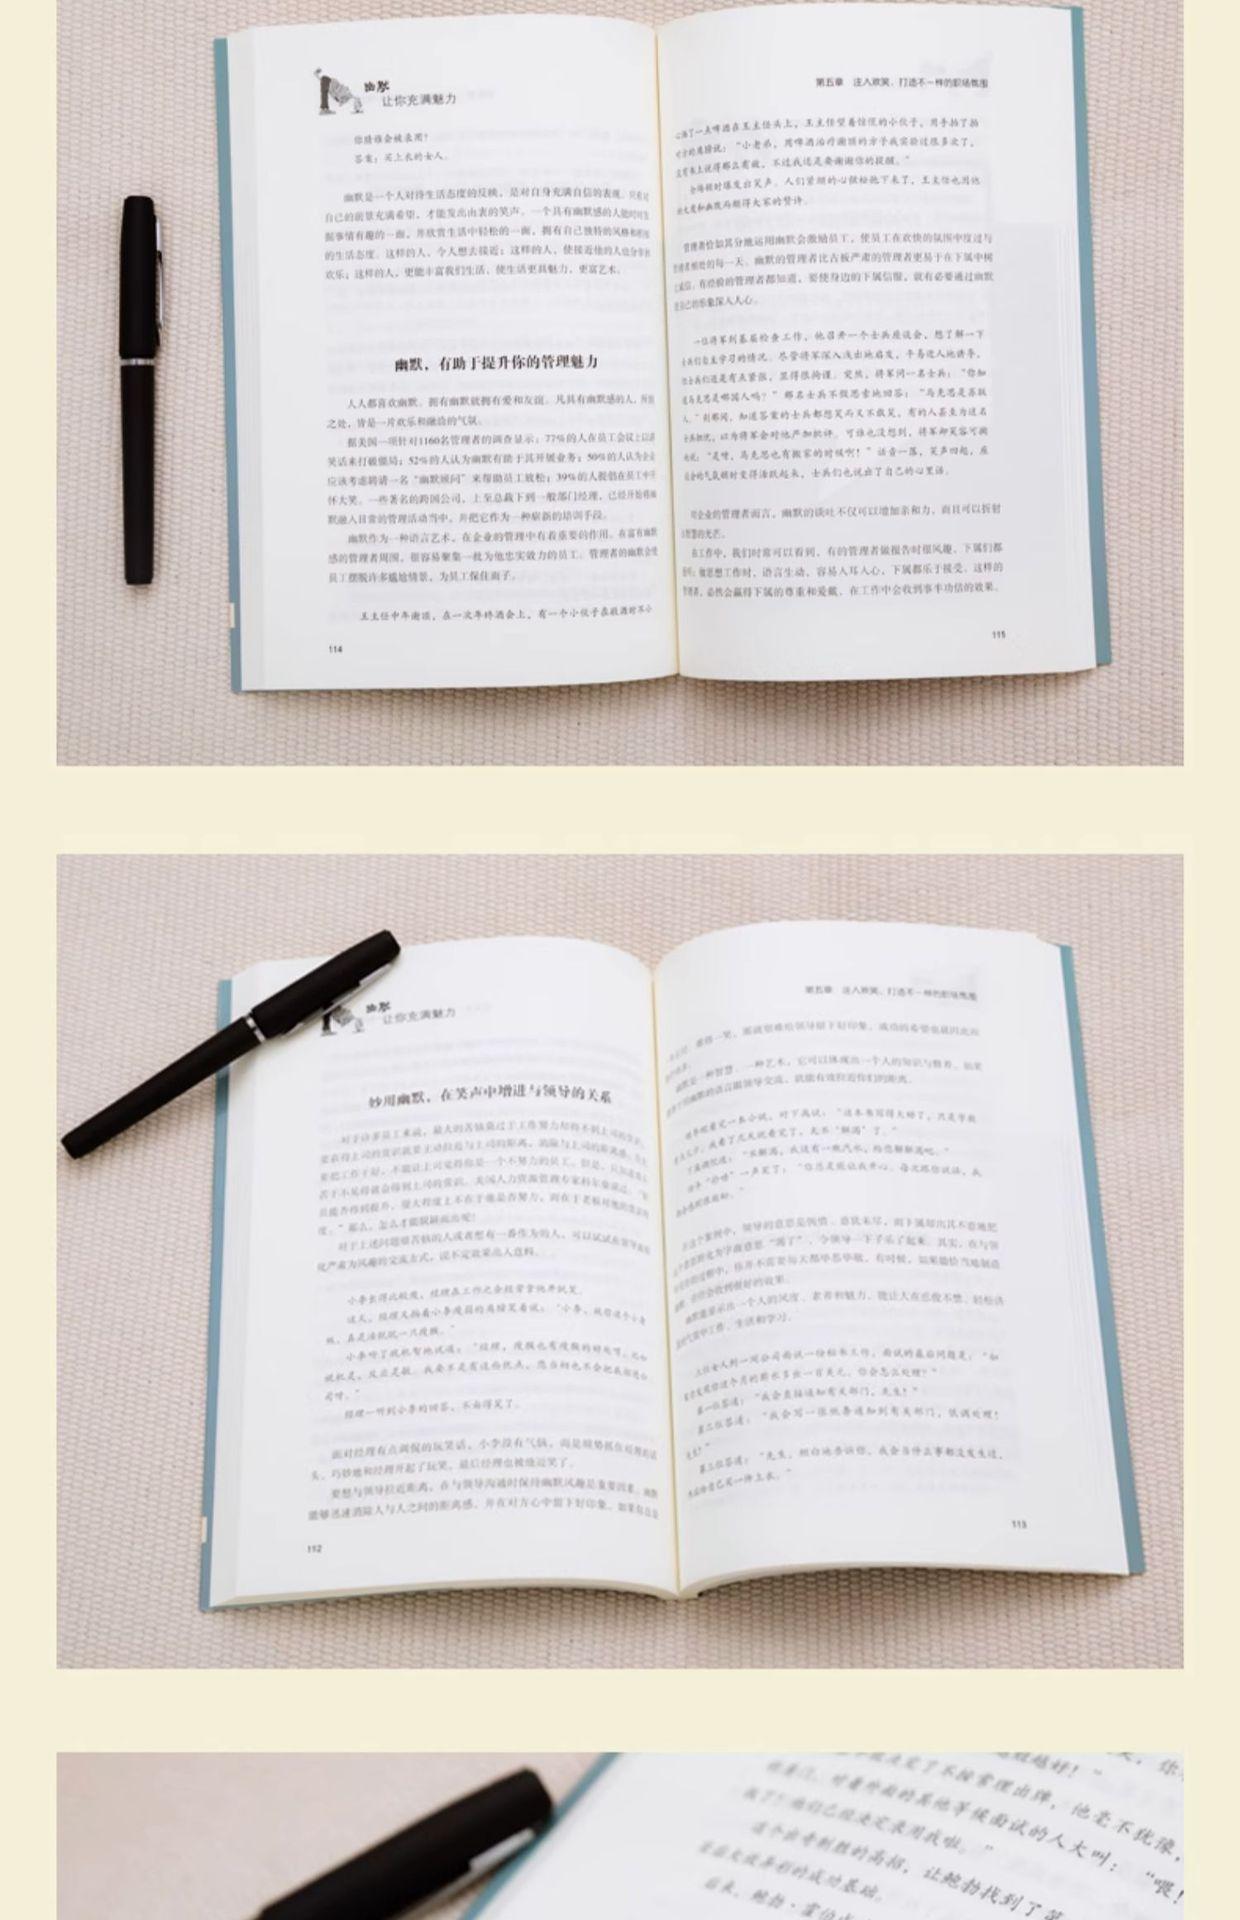 幽默
让你充满魅力
你猜谁会被录用？
答案：买上衣的女人。
幽默是一个人对待生活态度的反映，是对自身充满自信的表现。只有对
自己的前景充满希望，才能发出由衷的笑声。一个具有幽默感的人能时时发
掘事情有趣的一面，并欣赏生活中轻松的一面，拥有自己独特的风格和
的生活态度。这样的人，令人想去接近；这样的人，使接近他的人也分享到
欢乐；这样的人，更能丰富我们生活，使生活更具魅力，更富艺术。
幽默，有助于提升你的管理魅力
人人都喜欢幽默。拥有幽默就拥有爱和友谊。凡具有幽默感的人，所到
之处，皆是一片欢乐和融洽的气氛。
据美国一项针对1160名管理者的调查显示：77%的人在员工会议上以讲
笑话来打破僵局；52%的人认为幽默有助于其开展业务；50%的人认为企业
应该考虑聘请一名“幽默顾问”来帮助员工放松；39%的人提倡在员工中开
怀大笑。一些著名的跨国公司，上至总裁下到一般部门经理，已经开始将幽
默融入日常的管理活动当中，并把它作为一种崭新的培训手段。
幽默作为一种语言艺术，在企业的管理中有着重要的作用。在富有幽默
感的管理者周围，很容易聚集一批为他忠实效力的员工。管理者的幽默会使
员工摆脱许多尴尬情景，为员工保住面子。
王主任中年谢顶，在一次年终酒会上，有一个小伙子在敬酒时不小
114
第五章 注入欢笑，打造不一样的职场氛围
心洒了一点啤酒在王主任头上，王主任望着惊慌的小伙子，用手拍了拍
对方的肩膀说：“小老弟，用啤酒治疗谢顶的方子我实验过很多次了，
没有书上说得那么有效，不过我还是要谢谢你的提醒。”
全场顿时爆发出笑声。人们紧绷的心弦松弛下来了，王主任也因他
的大度和幽默而赢得大家的赞许。
管理者恰如其分地运用幽默会激励员工，使员工在欢快的氛围中度过与
管理者相处的每一天。幽默的管理者比古板严肃的管理者更易于在下属中树
立威信。有经验的管理者都知道，要使身边的下属信服，就有必要通过幽默
使自己的形象深入人心。
一位将军到基层检查工作，他召开一个士兵座谈会，想了解一下
士兵们自主学习的情况。尽管将军深入浅出地启发，平易近人地诱导，
但士兵们还是有点紧张，显得很拘谨。突然，将军问一名士兵：“你知
道马克思是哪国人吗？”那名士兵不假思索地回答：“马克思是苏联
人。”刹那间，知道答案的士兵都想笑而又不敢笑，有的人甚至为这名
士兵担忧，以为将军会对他严加批评。可谁也没想到，将军却笑容可掬
地说：“是呀，马克思也有搬家的时候啊！”话音一落，笑声四起，座
谈会的气氛顿时变得活跃起来，士兵们也说出了自己的心里话。
对企业的管理者而言，幽默的谈吐不仅可以增加亲和力，而且可以折射
出智慧的光芒。
在工作中，我们时常可以看到，有的管理者做报告时很风趣，下属们都
爱听；做思想工作时，语言生动，容易入耳入心，下属都乐于接受。这样的
管理者，必然会赢得下属的尊重和爱戴，在工作中会收到事半功倍的效果。
115
幽默
让你充满魅力
妙用幽默，在笑声中增进与领导的关系
对于许多员工来说，最大的苦恼莫过于工作努力却得不到上司的赏识。
要获得上司的赏识就要主动拉近与上司的距离，消除与上司的距离感。
要把工作干好，不能让上司觉得你是一个不努力的员工。但是，只知道埋头
苦干不见得就会得到上司的赏识。美国人力资源管理专家科尔曼说过：
员能否得到提升，很大程度上不在于他是否努力，而在于老板对他的赏识程
度。”那么，怎么才能脱颖而出呢？
对于上述问题烦苦恼的人或者想有一番作为的人，可以试试
化严肃为风趣的交流方式，说不定效果出人意料。
小李长得比较瘦，经理在工作之余经常拿他开玩笑。
这天，经理又拍着小李瘦弱的肩膀笑着说：“小李，就你这个小身
板，真是活脱脱一只瘦猴。”
小李听了就机智地说道：“经理，瘦猴也有瘦猴的好处呀，比如
说机灵，反应灵敏。我要不是有这些优点，您当初也不会把我招进公
司呀。”
经理一听到小李的回答，不由得笑了。
面对经理有点调侃的玩笑话，小李没有气恼，而是顺势抓住经理的话
头，巧妙地和经理开起了玩笑，最后经理也被他逗笑了。
要想与领导拉近距离，在与领导沟通时保持幽默风趣是重要因素。幽默
能够迅速消除人与人之间的距离感，并在对方心中留下好印象。如果你总是
112
第五章 注入欢笑，打造不一样的职场氛围
难得一笑，那就很难给领导留下好印象，成功的希望也就因此而
幽默是一种智慧、一种艺术，它可以体现出一个人的知识与修养。如果
用幽默的语言跟领导交流，就能有效拉近你们的距离。
领导刚看完一本小说，对下属说：“这本书写得太好了，只是字数
有点儿少，我看了几天就看完了，太不‘解渴’了。”
下属调侃道：“不解渴，我这有一瓶汽水，给您解解渴吧。”
领导“扑哧”一声笑了：“你总是能让我开心。每次跟你谈话，我
在这个案例中，领导的意思是惋惜、意犹未尽，而下属却出其不意地把
这个意思转化为字面意思“渴了”，令领导一下子乐了起来。其实，在与领
导交往的过程中，你并不需要每天都毕恭毕敬，有时候，如果能恰当地制造
幽默，往往会收到很好的效果。
幽默能显示出一个人的风度、素养和魅力，能让人在忍俊不禁、轻松活
泼的气氛中工作、生活和学习。
三位女人到一间公司面试一份秘书工作，面试的最后问题是：“如
果你发现你这个月的薪水多出一百美元，你会怎么处理？”
第一位答道：“我会直接通知有关部门，先生！”
第二位答道：“我会写一张纸条通知到有关部门，低调处理！
先生！”
第三位答道：“先生，坦白地告诉你，我会当作什么事都没发生过，
然后给自己买一件上衣。”
113
越好！”
决定了不按常理出牌，他毫不犹豫，
推着门，对着外面的其他等候面试的人大叫：“喂！
我了！他们已经决定录用我啦。”
这个出奇制胜的高招，让鲍勃找到了第